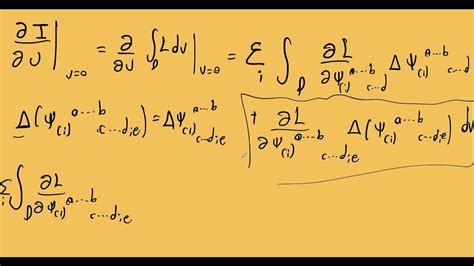 ∂I/∂u |_{u=0} = ∂/∂u ∫_D L dv |_{u=0} = Σ_i ∫_D ∂L/∂ψ_{(i)}^{a...b}_{c...d} Δψ_{(i)}^{a...b}_{c...d}
+ ∂L/∂ψ_{(i)}^{a...b}_{c...d;e} Δ(ψ_{(i)}^{a...b}_{c...d;e}) dv
Δ(ψ_{(i)}^{a...b}_{c...d;e}) = Δψ_{(i)}^{a...b}_{c...d;e}
Σ_i ∫_D ∂L/∂ψ_{(i)}^{a...b}_{c...d;e}